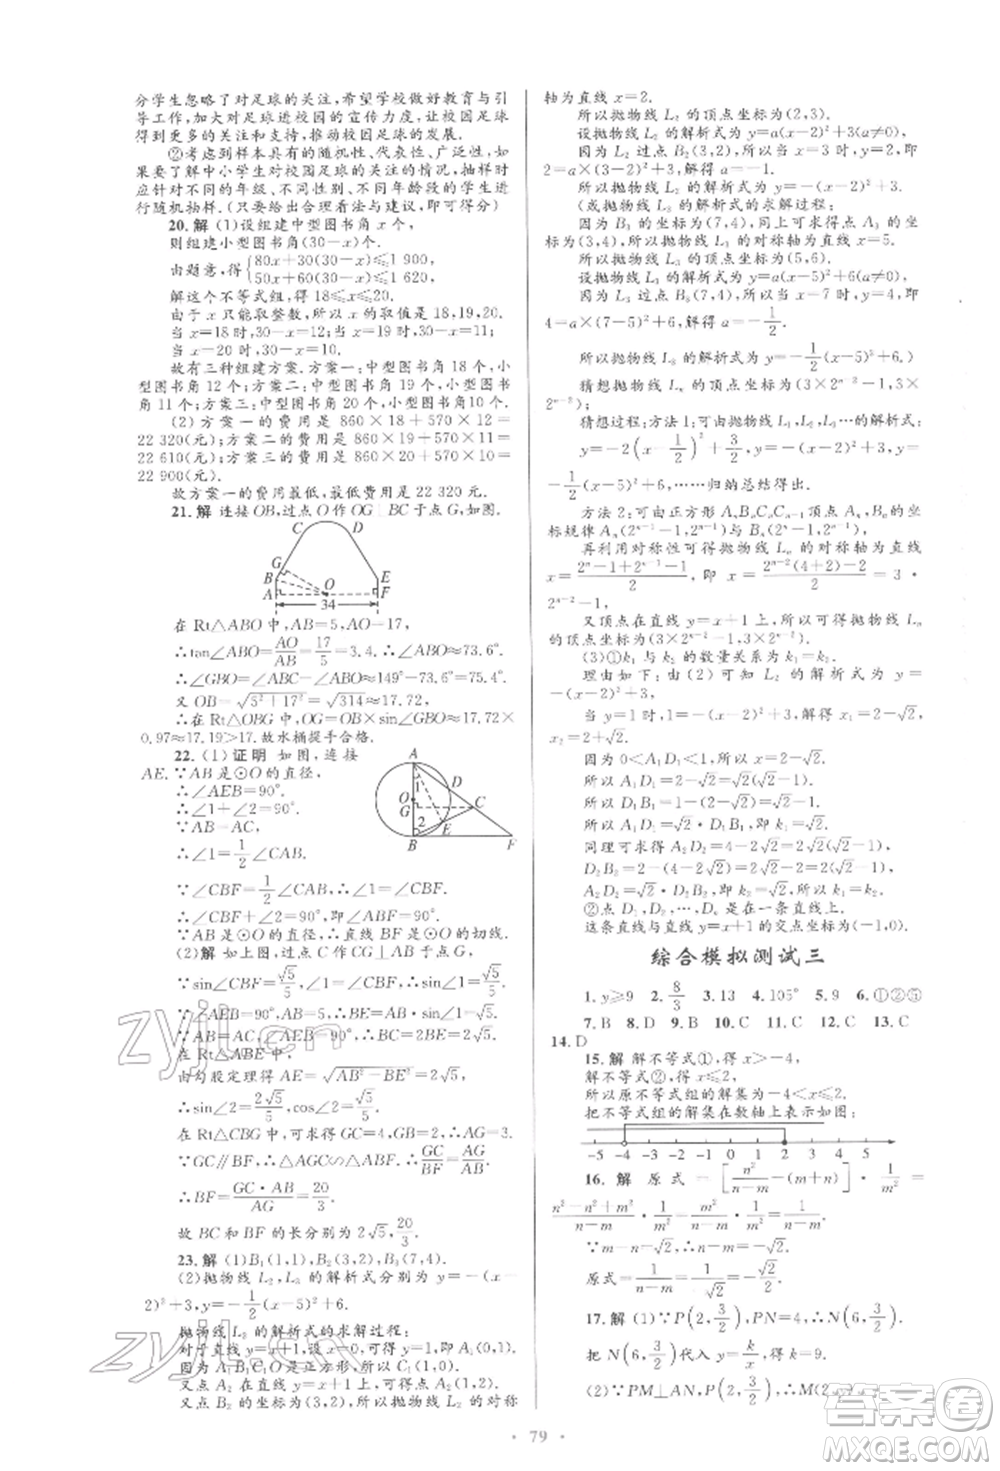 分学生忽略了对足球的关注,希望学校做好教育与引
导工作,加大对足球进校园的宣传力度,让校园足球
得到更多的关注和支持,推动校园足球的发展.
②考虑到样本具有的随机性、代表性、广泛性,如
果要了解中小学生对校园足球的关注情况,抽样时
应针对不同的年级、不同性别、不同年龄段的学生进
行随机抽样.(只要给出合理看法与建议,即可得分)
20.解 (1)设组建中型图书角 x 个,
则组建小型图书角(30-x)个.
由题意,得{80x+30(30-x)≤1 900,
50x+60(30-x)≤1 620.
解这个不等式组,得 18≤x≤20.
由于 x 只能取整数,所以 x 的取值是 18,19,20.
当 x=18时,30-x=12;当 x=19时,30-x=11;
当 x=20时,30-x=10.
故有三种组建方案.方案一:中型图书角 18 个,小
型图书角12个;方案二:中型图书角 19 个,小型图书
角11个;方案三:中型图书角 20 个,小型图书角10个.
(2) 方案一的费用是 860×18+570×12=
22 320(元);方案二的费用是 860×19+570×11=
22 610(元);方案三的费用是 860×20+570×10=
22 900(元).
故方案一的费用最低,最低费用是 22 320 元.
21.解 连接OB,过点 O作 OG⊥BC于点 G,如图.
C D
G
B E
A O F
34
在 Rt△ABO 中,AB=5,AO=17,
∴tan∠ABO=AO/AB=17/5=3.4,∴∠ABO≈73.6°.
∴∠GBO=∠ABC-∠ABO≈149°-73.6°=75.4°.
又 OB=√(5²+17²)=√314≈17.72,
∴在 Rt△OBG 中,OG=OB×sin∠GBO≈17.72×
0.97≈17.19>17.故水桶提手合格.
22.(1)证明 如图,连接
AE.∵AB是⊙O的直径,
∴∠AEB=90°.
∴∠1+∠2=90°.
∵AB=AC,
∴∠1=1/2∠CAB.
A
1 D
O
G C
2 E
B F
∵∠CBF=1/2∠CAB,∴∠1=∠CBF.
∴∠CBF+∠2=90°,即∠ABF=90°.
∵AB是⊙O的直径,∴直线 BF是⊙O的切线.
(2)解 如上图,过点 C作 CG⊥AB于点 G,
∵sin∠CBF=√5/5,∠1=∠CBF,∴sin∠1=√5/5.
∵∠AEB=90°,AB=5,∴BE=AB·sin∠1=√5.
∵AB=AC,∠AEB=90°,∴BC=2BE=2√5.
在 Rt△ABE 中,
由勾股定理得 AE=√(AB²-BE²)=2√5.
∴sin∠2=2√5/5,cos∠2=√5/5.
在 Rt△CBG 中,可求得 GC=4,GB=2.∴AG=3.
∵GC∥BF,∴△AGC∽△ABF.∴GC/BF=AG/AB.
∴BF=GC·AB/AG=20/3.
故 BC 和 BF 的长分别为 2√5,20/3.
23.解 (1)B₁(1,1),B₂(3,2),B₃(7,4).
(2)抛物线 L₂,L₃ 的解析式分别为 y=-(x-
2)²+3,y=-1/2(x-5)²+6.
抛物线 L₂的解析式的求解过程:
对于直线 y=x+1,设x=0,可得 y=1,A₁(0,1).
又A₁B₁C₁O是正方形,所以 C₁(1,0).
又点 A₂ 在直线 y=x+1 上,可得点 A₂(1,2).
又点 B₂ 的坐标为(3,2),所以抛物线 L₂ 的对称
轴为直线 x=2.
所以抛物线 L₂ 的顶点坐标为(2,3).
设抛物线 L₂ 的解析式为 y=a(x-2)²+3(a≠0).
因为 L₂ 过点 B₂(3,2),所以当 x=3时,y=2,即
2=a×(3-2)²+3,解得 a=-1.
所以抛物线 L₂ 的解析式为 y=-(x-2)²+3.
(或抛物线 L₃ 的解析式的求解过程:
因为 B₃ 的坐标为(7,4),同上可求得点 A₃ 的坐
标为(3,4),所以抛物线 L₃ 的对称轴为直线 x=5.
所以抛物线 L₃ 的顶点坐标为(5,6).
设抛物线 L₃ 的解析式为 y=a(x-5)²+6(a≠0).
因为 L₃ 过点 B₃(7,4),所以当 x=7时,y=4,即
4=a×(7-5)²+6,解得 a=-1/2.
所以抛物线 L₃ 的解析式为 y=-1/2(x-5)²+6.)
猜想抛物线 Lₙ 的顶点坐标为(3×2ⁿ⁻²-1,3×
2ⁿ⁻²).
猜想过程:方法1:可由抛物线 L₁,L₂,L₃,…的解析
式:y=-2(x-1/2)²+3/2,y=-(x-2)²+3,y=-
1/2(x-5)²+6,…归纳总结得出.
方法 2:可由正方形 AₙBₙCₙCₙ₋₁顶点 Aₙ,Bₙ的坐
标规律 Aₙ(2ⁿ⁻¹-1,2ⁿ⁻¹)与 Bₙ(2ⁿ-1,2ⁿ⁻¹),
再利用对称性可得抛物线 Lₙ 的对称轴为直线
x=(2ⁿ-1+2ⁿ⁻¹-1)/2,即 x=(2ⁿ⁻²(4+2)-2)/2=3·
2ⁿ⁻²-1,
又顶点在直线 y=x+1 上,所以可得抛物线 Lₙ
的顶点坐标为(3×2ⁿ⁻²-1,3×2ⁿ⁻²).
(3)①k₁ 与 k₂ 的数量关系为 k₁=k₂.
理由如下:同(2)可求得 L₂ 的解析式为 y=
-(x-2)²+3,
当 y=1 时,1=-(x-2)²+3,解得 x₁=2-√2,
x₂=2+√2.
因为 0<A₁D₁<1,所以 x=2-√2.
所以 A₁D₁=2-√2=√2(√2-1).
所以 D₁B₁=1-(2-√2)=√2-1.
所以A₁D₁=√2·D₁B₁,即k₁=√2.
同理可求得 A₂D₂=4-2√2=2√2(√2-1),
D₂B₂=2-(4-2√2)=2√2-2=2(√2-1),
A₂D₂=√2·D₂B₂,即 k₂=√2,所以 k₁=k₂.
②点 D₁,D₂,…,Dₙ是在一条直线上.
这条直线与直线y=x+1的交点坐标为(-1,0).
综合模拟测试三
1.y≥9 2.8/3 3.13 4.105° 5.9 6.①②⑤
7.B 8.D 9.B 10.C 11.C 12.C 13.C
14.D
15.解 解不等式①,得 x>-4,
解不等式②,得 x≤2,
所以原不等式组的解集为-4<x≤2,
把不等式组的解集在数轴上表示如图:
-5 -4 -3 -2 -1 0 1 2 3 4 5
16.解 原式=[n²/(n-m)-(m+n)]·1/m²=
(n²-n²+m²)/(n-m)·1/m²=1/(n-m).
∵m-n=√2,∴n-m=-√2.
原式=1/(n-m)=1/(-√2)=-√2/2.
17.解 (1)∵P(2,3/2),PN=4,∴N(6,3/2).
把 N(6,3/2)代入 y=k/x,得 k=9.
(2)∵PM⊥AN,P(2,3/2),∴M(2,
79
zyjl.cn
zyjl.cn
答案圈
MXQE.COM